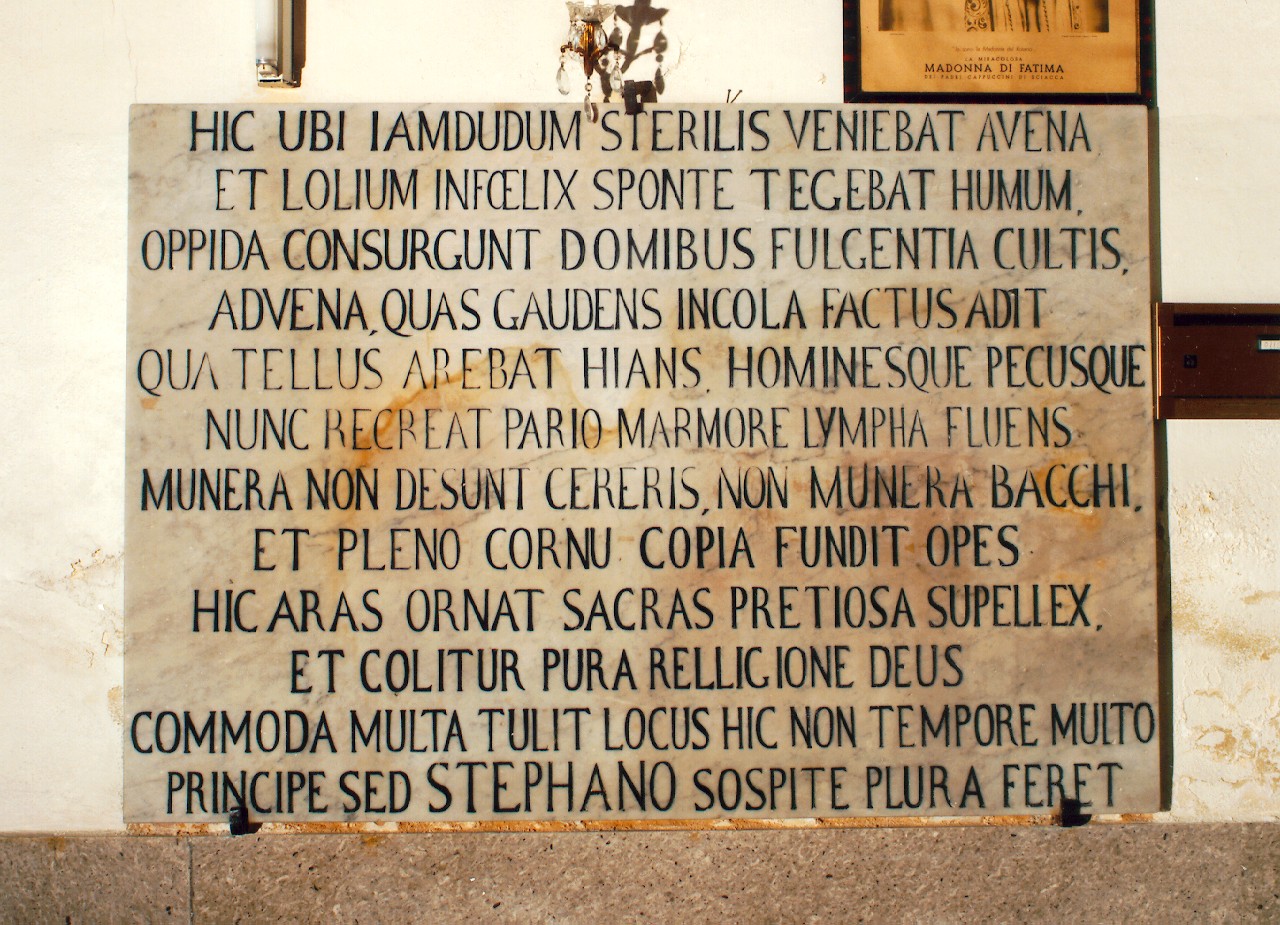 "Io sono la Madonna del Rosario"
LA MIRACOLOSA
MADONNA DI FATIMA
DEI PADRI CAPPUCCINI DI SCIACCA
HIC UBI IAMDUDUM STERILIS VENIEBAT AVENA
ET LOLIUM INFŒLIX SPONTE TEGEBAT HUMUM,
OPPIDA CONSURGUNT DOMIBUS FULGENTIA CULTIS,
ADVENA, QUAS GAUDENS INCOLA FACTUS ADIT
QUA TELLUS AREBAT HIANS, HOMINESQUE PECUSQUE
NUNC RECREAT PARIO MARMORE LYMPHA FLUENS
MUNERA NON DESUNT CERERIS, NON MUNERA BACCHI,
ET PLENO CORNU COPIA FUNDIT OPES
HIC ARAS ORNAT SACRAS PRETIOSA SUPELLEX,
ET COLITUR PURA RELLIGIONE DEUS
COMMODA MULTA TULIT LOCUS HIC NON TEMPORE MULTO
PRINCIPE SED STEPHANO SOSPITE PLURA FERET